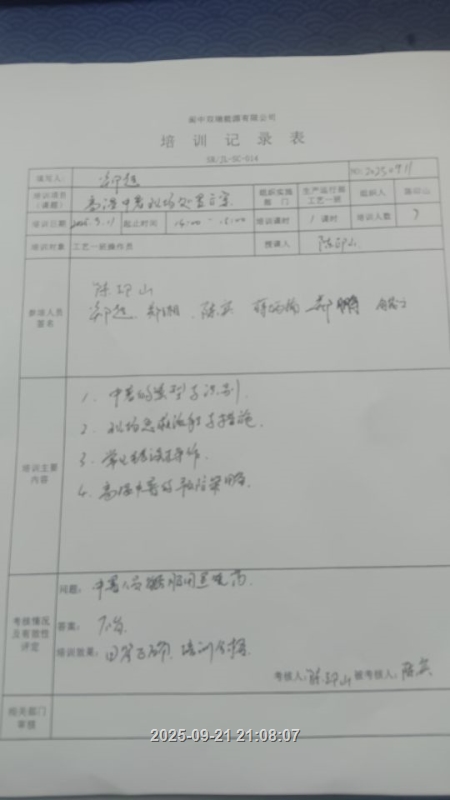 阆中双瑞能源有限公司
培训记录表
SR/JL-SC-014
填写人： NO:20250911
培训项目（课题） 高温中暑现场处置方案 组织实施部门 生产运行部工艺一班 组织人 陈印山
培训日期 2025.9.11 起止时间 14:00-15:00 培训课时 1课时 培训人数 7
培训对象 工艺一班操作员 授课人 陈印山
参培人员签名
陈印山
陈实 郑鹏
培训主要内容
1、中暑的类型与识别
2、现场急救流程与措施
3、常见错误操作
4、高温中暑的预防策略
考核情况及有效性评定
问题：中暑人员
答案：不
培训效果：回答正确，培训合格
考核人：陈印山 被考核人：陈实
相关部门审核
2025-09-21 21:08:07